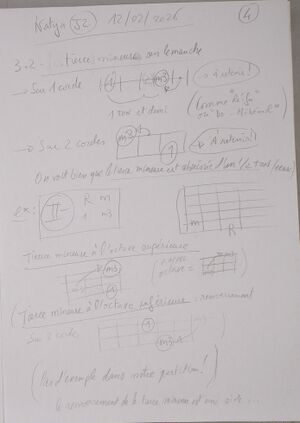 Natya J2 12/02/2026 4
3.2 - La tierce mineure sur le manche
→ Sur 1 corde 1 m3 → à retenir!
R
1 ton et demi (comme "Ré-fa"
ou "do - Mi bémol")
→ Sur 2 cordes m3 1 → A retenir!
On voit bien que la tierce mineure est abaissée d'un 1/2 ton /
ex: II- R m
1 m3
m R
Tierce mineure à l'octave supérieure
m3
octave =
(Tierce mineure à l'octave inférieure, renversement
Sur 2 cordes 1
m3
(Pas d'exemple dans notre partition!)
le renversement de la tierce mineure est une sixte ...